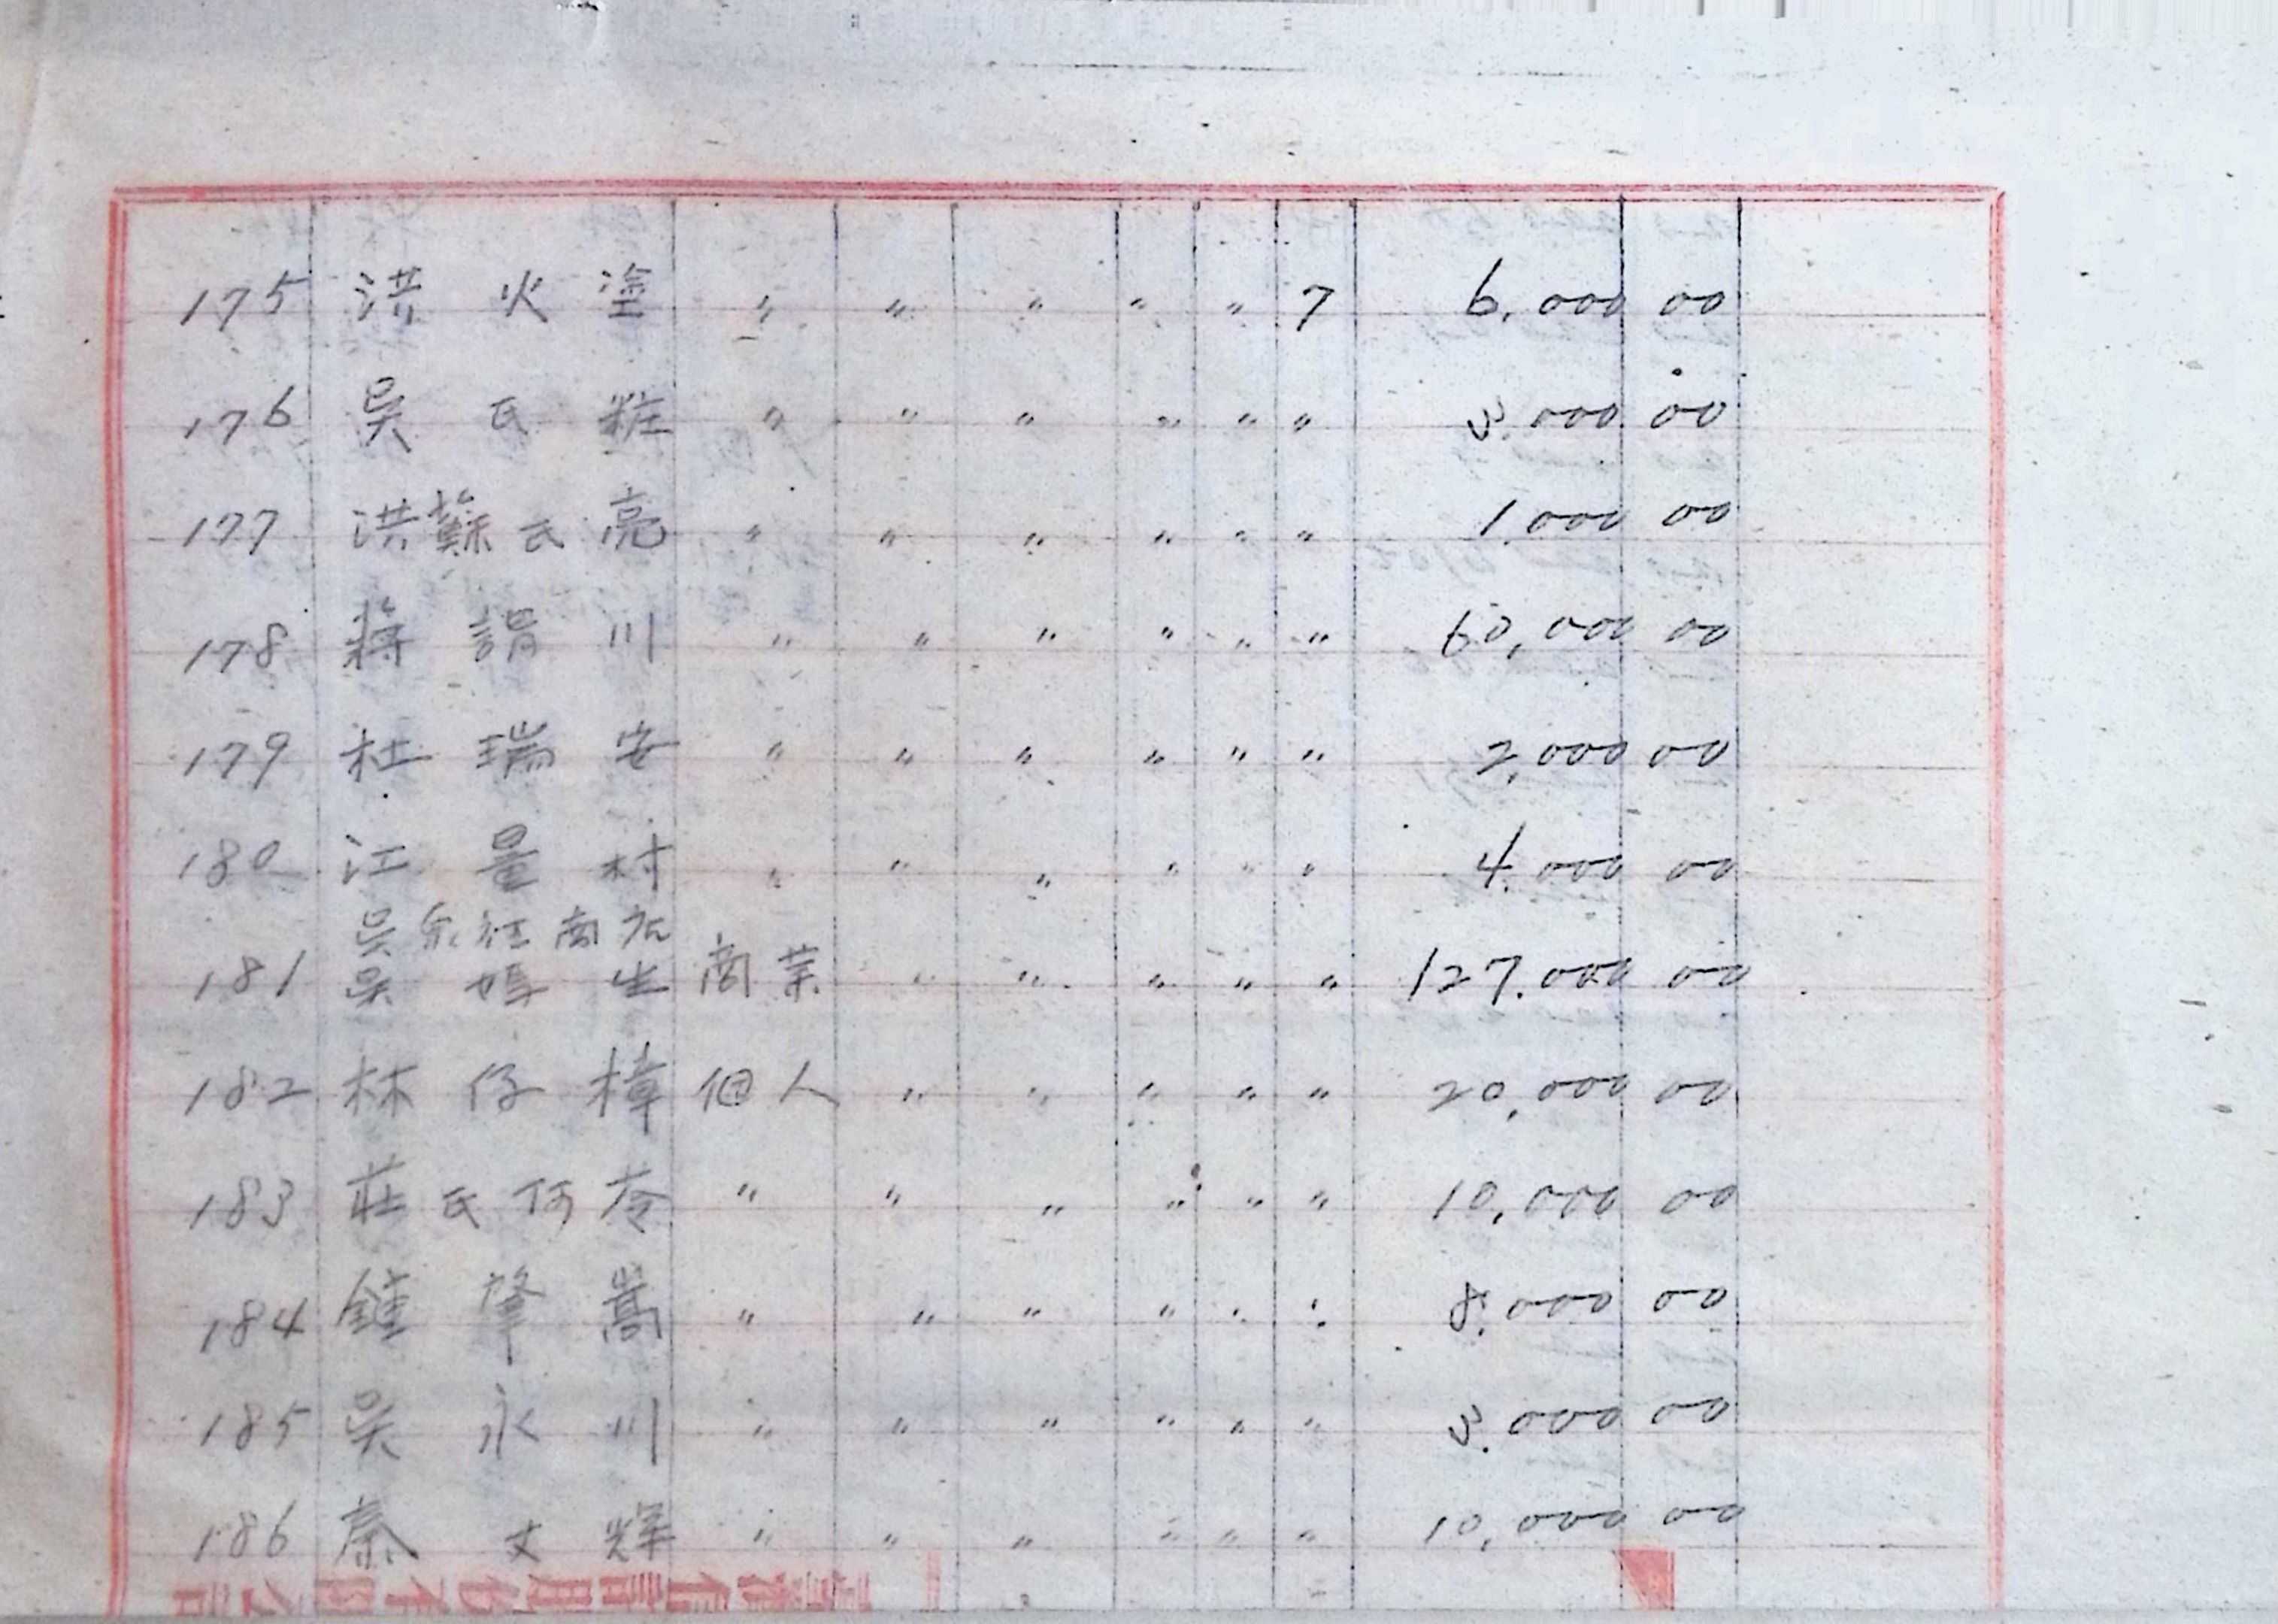 175 洪火塗 〃 〃 〃 〃 〃 7 6,000 00
176 吳氏粧 〃 〃 〃 〃 〃 〃 3.000 00
177 洪蘇氏亮 〃 〃 〃 〃 〃 〃 1.000 00
178 蔣謂川 〃 〃 〃 〃 〃 〃 60,000 00
179 杜瑞安 〃 〃 〃 〃 〃 〃 2,000 00
180 江量村 〃 〃 〃 〃 〃 〃 4.000 00
吳 商
181 吳媽生 商業 〃 〃 〃 〃 〃 127.000 00
182 林仔樟 個人 〃 〃 〃 〃 〃 20,000 00
183 莊氏何苓 〃 〃 〃 〃 〃 〃 10,000 00
184 鍾肇嵩 〃 〃 〃 〃 〃 〃 8.000 00
185 吳永川 〃 〃 〃 〃 〃 〃 3.000 00
186 秦文輝 〃 〃 〃 〃 〃 〃 10,000 00